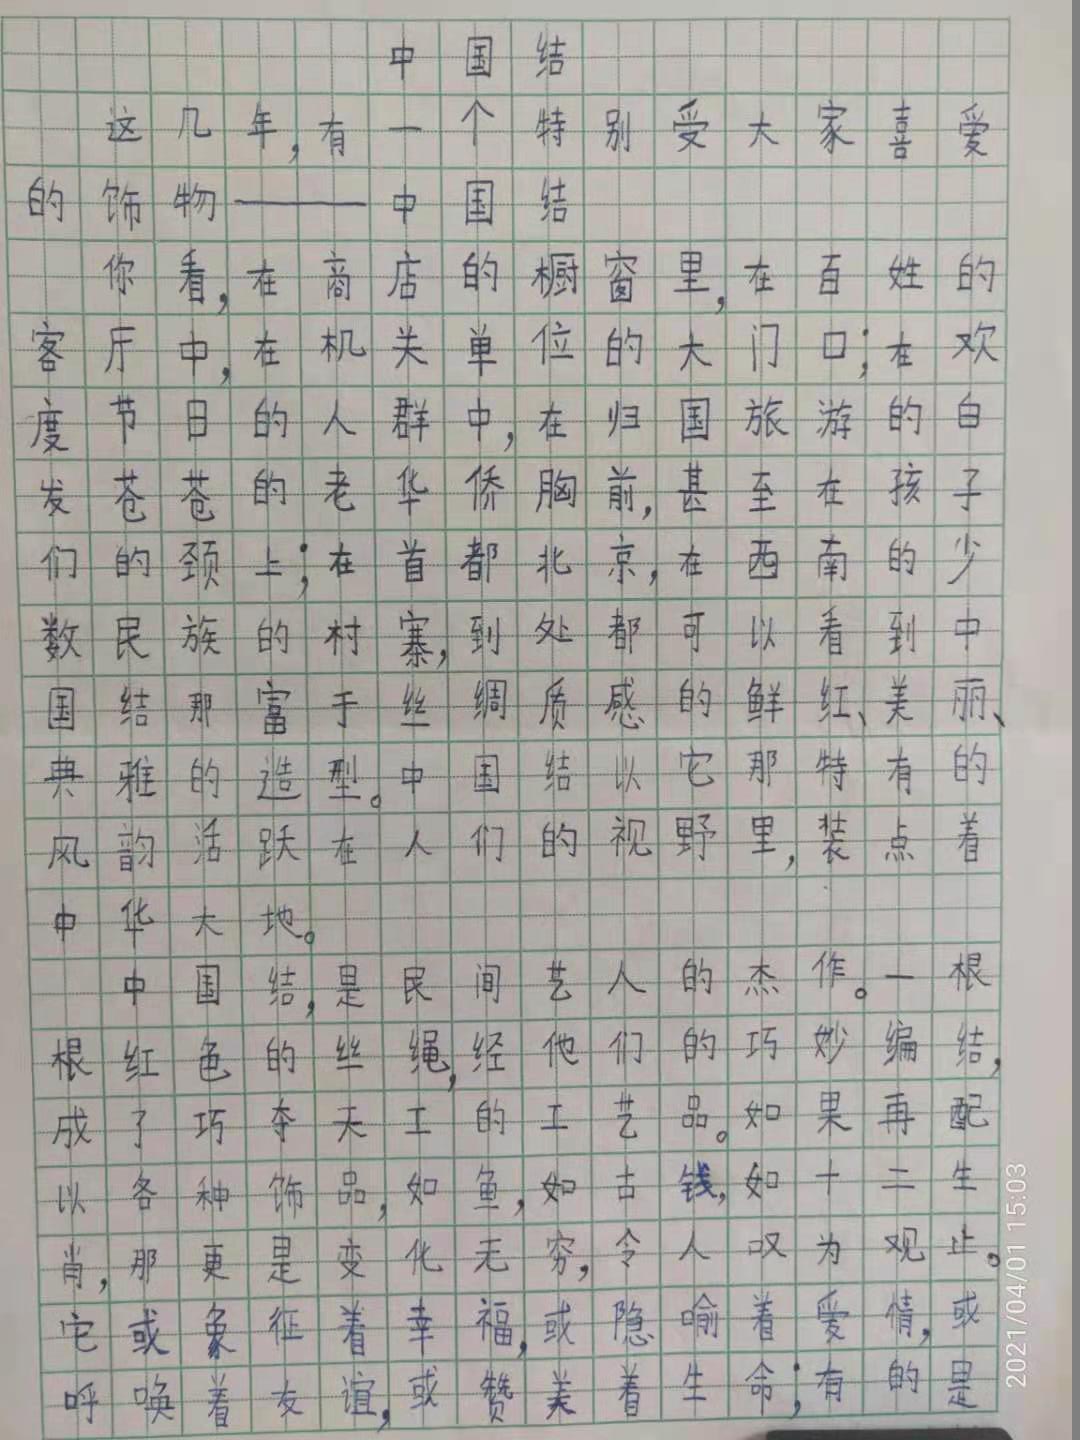 中国结
这几年,有一个特别受大家喜爱
的饰物——中国结
你看,在商店的橱窗里,在百姓的
客厅中,在机关单位的大门口;在欢
度节日的人群中,在归国旅游的白
发苍苍的老华侨胸前,甚至在孩子
们的颈上;在首都北京,在西南的少
数民族的村寨,到处都可以看到中
国结那富于丝绸质感的鲜红、美丽、
典雅的造型。中国结以它那特有的
风韵活跃在人们的视野里,装点着
中华大地。
中国结,是民间艺人的杰作。一根
根红色的丝绳,经他们的巧妙编结,
成了巧夺天工的工艺品。如果再配
以各种饰品,如鱼,如古钱,如十二生
肖,那更是变化无穷,令人叹为观止。
它或象征着幸福,或隐喻着爱情,或
呼唤着友谊,或赞美着生命;有的是
2021/04/01 15:03